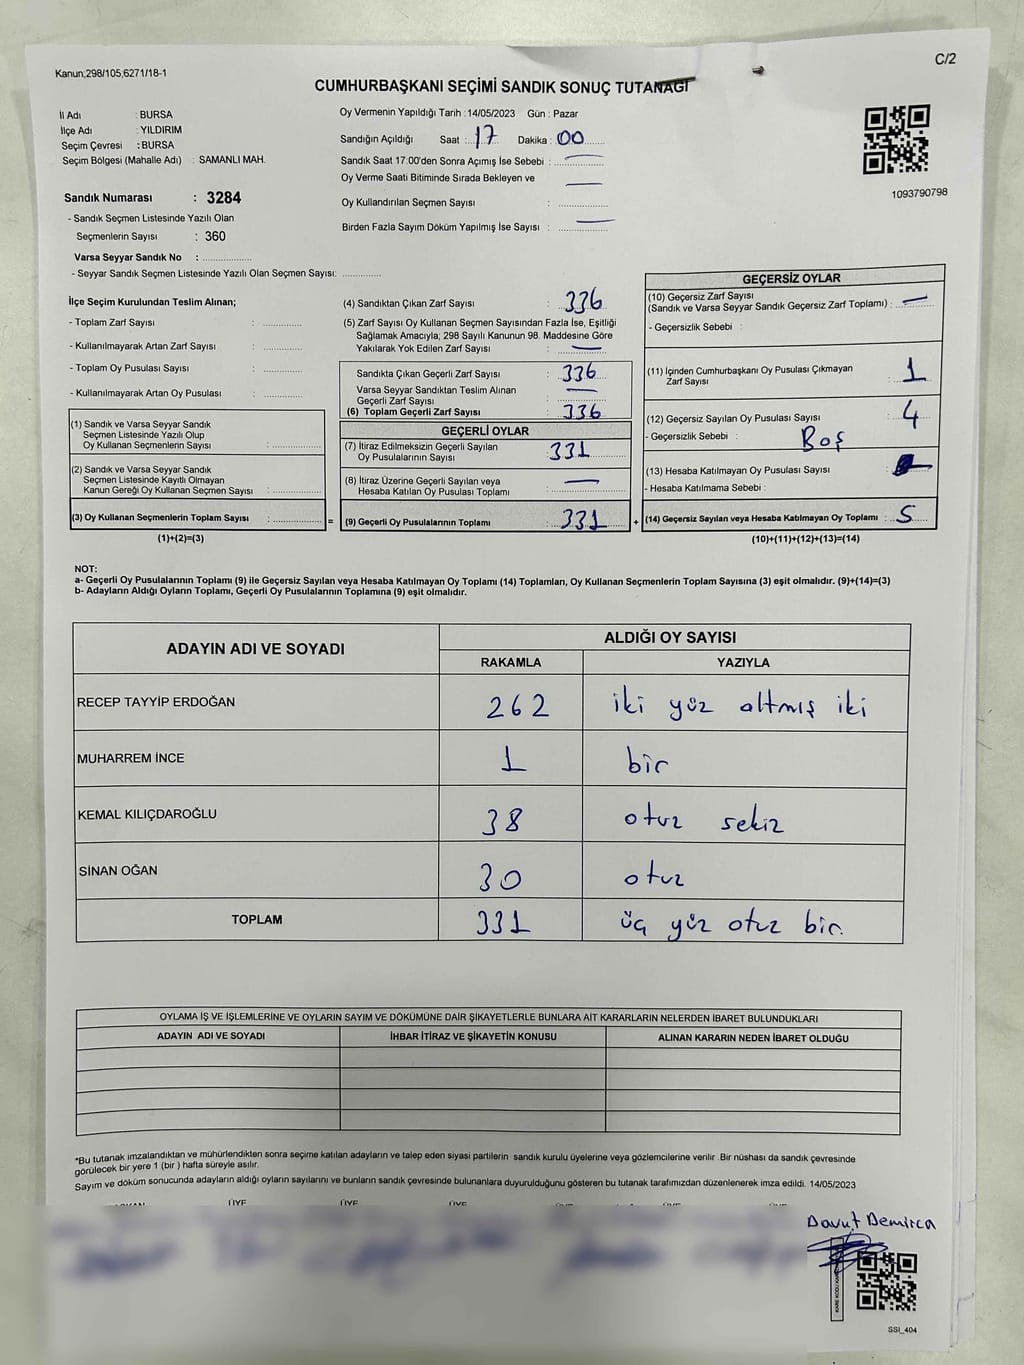 Kanun;298/105;6271/18-1
C/2
CUMHURBAŞKANI SEÇİMİ SANDIK SONUÇ TUTANAĞI
İl Adı : BURSA
İlçe Adı : YILDIRIM
Seçim Çevresi : BURSA
Seçim Bölgesi (Mahalle Adı) : SAMANLI MAH.
Sandık Numarası : 3284
- Sandık Seçmen Listesinde Yazılı Olan
Seçmenlerin Sayısı : 360
Varsa Seyyar Sandık No : ................
- Seyyar Sandık Seçmen Listesinde Yazılı Olan Seçmen Sayısı: .............
Oy Vermenin Yapıldığı Tarih : 14/05/2023 Gün : Pazar
Sandığın Açıldığı Saat : 17 Dakika : 00
Sandık Saat 17:00'den Sonra Açımış İse Sebebi : —
Oy Verme Saati Bitiminde Sırada Bekleyen ve —
Oy Kullandırılan Seçmen Sayısı : ................
Birden Fazla Sayım Döküm Yapılmış İse Sayısı : —
1093790798
İlçe Seçim Kurulundan Teslim Alınan;
- Toplam Zarf Sayısı : .............
- Kullanılmayarak Artan Zarf Sayısı : .............
- Toplam Oy Pusulası Sayısı : .............
- Kullanılmayarak Artan Oy Pusulası : .............
(1) Sandık ve Varsa Seyyar Sandık
Seçmen Listesinde Yazılı Olup
Oy Kullanan Seçmenlerin Sayısı : .............
(2) Sandık ve Varsa Seyyar Sandık
Seçmen Listesinde Kayıtlı Olmayan
Kanun Gereği Oy Kullanan Seçmen Sayısı : .............
(3) Oy Kullanan Seçmenlerin Toplam Sayısı : .............
(1)+(2)=(3)
(4) Sandıktan Çıkan Zarf Sayısı : 336
(5) Zarf Sayısı Oy Kullanan Seçmen Sayısından Fazla İse, Eşitliği
Sağlamak Amacıyla; 298 Sayılı Kanunun 98. Maddesine Göre
Yakılarak Yok Edilen Zarf Sayısı : —
Sandıkta Çıkan Geçerli Zarf Sayısı : 336
Varsa Seyyar Sandıktan Teslim Alınan —
Geçerli Zarf Sayısı :
(6) Toplam Geçerli Zarf Sayısı : 336
GEÇERLİ OYLAR
(7) İtiraz Edilmeksizin Geçerli Sayılan
Oy Pusulalarının Sayısı : 331
(8) İtiraz Üzerine Geçerli Sayılan veya
Hesaba Katılan Oy Pusulası Toplamı : —
= (9) Geçerli Oy Pusulalarının Toplamı : 331 +
GEÇERSİZ OYLAR
(10) Geçersiz Zarf Sayısı
(Sandık ve Varsa Seyyar Sandık Geçersiz Zarf Toplamı) : —
- Geçersizlik Sebebi :
(11) İçinden Cumhurbaşkanı Oy Pusulası Çıkmayan
Zarf Sayısı : 1
(12) Geçersiz Sayılan Oy Pusulası Sayısı : 4
- Geçersizlik Sebebi : Boş
(13) Hesaba Katılmayan Oy Pusulası Sayısı : —
- Hesaba Katılmama Sebebi :
(14) Geçersiz Sayılan veya Hesaba Katılmayan Oy Toplamı : 5
(10)+(11)+(12)+(13)=(14)
NOT:
a- Geçerli Oy Pusulalarının Toplamı (9) ile Geçersiz Sayılan veya Hesaba Katılmayan Oy Toplamı (14) Toplamları, Oy Kullanan Seçmenlerin Toplam Sayısına (3) eşit olmalıdır. (9)+(14)=(3)
b- Adayların Aldığı Oyların Toplamı, Geçerli Oy Pusulalarının Toplamına (9) eşit olmalıdır.
ADAYIN ADI VE SOYADI
ALDIĞI OY SAYISI
RAKAMLA YAZIYLA
RECEP TAYYİP ERDOĞAN 262 iki yüz altmış iki
MUHARREM İNCE 1 bir
KEMAL KILIÇDAROĞLU 38 otuz sekiz
SİNAN OĞAN 30 otuz
TOPLAM 331 üç yüz otuz bir.
OYLAMA İŞ VE İŞLEMLERİNE VE OYLARIN SAYIM VE DÖKÜMÜNE DAİR ŞİKAYETLERLE BUNLARA AİT KARARLARIN NELERDEN İBARET BULUNDUKLARI
ADAYIN ADI VE SOYADI İHBAR İTİRAZ VE ŞİKAYETİN KONUSU ALINAN KARARIN NEDEN İBARET OLDUĞU
*Bu tutanak imzalandıktan ve mühürlendikten sonra seçime katılan adayların ve talep eden siyasi partilerin sandık kurulu üyelerine veya gözlemcilerine verilir .Bir nüshası da sandık çevresinde
görülecek bir yere 1 (bir ) hafta süreyle asılır.
Sayım ve döküm sonucunda adayların aldığı oyların sayılarını ve bunların sandık çevresinde bulunanlara duyurulduğunu gösteren bu tutanak tarafımızdan düzenlenerek imza edildi. 14/05/2023
ÜYE ÜYE ÜYE
Davut Demirca
SSI_404